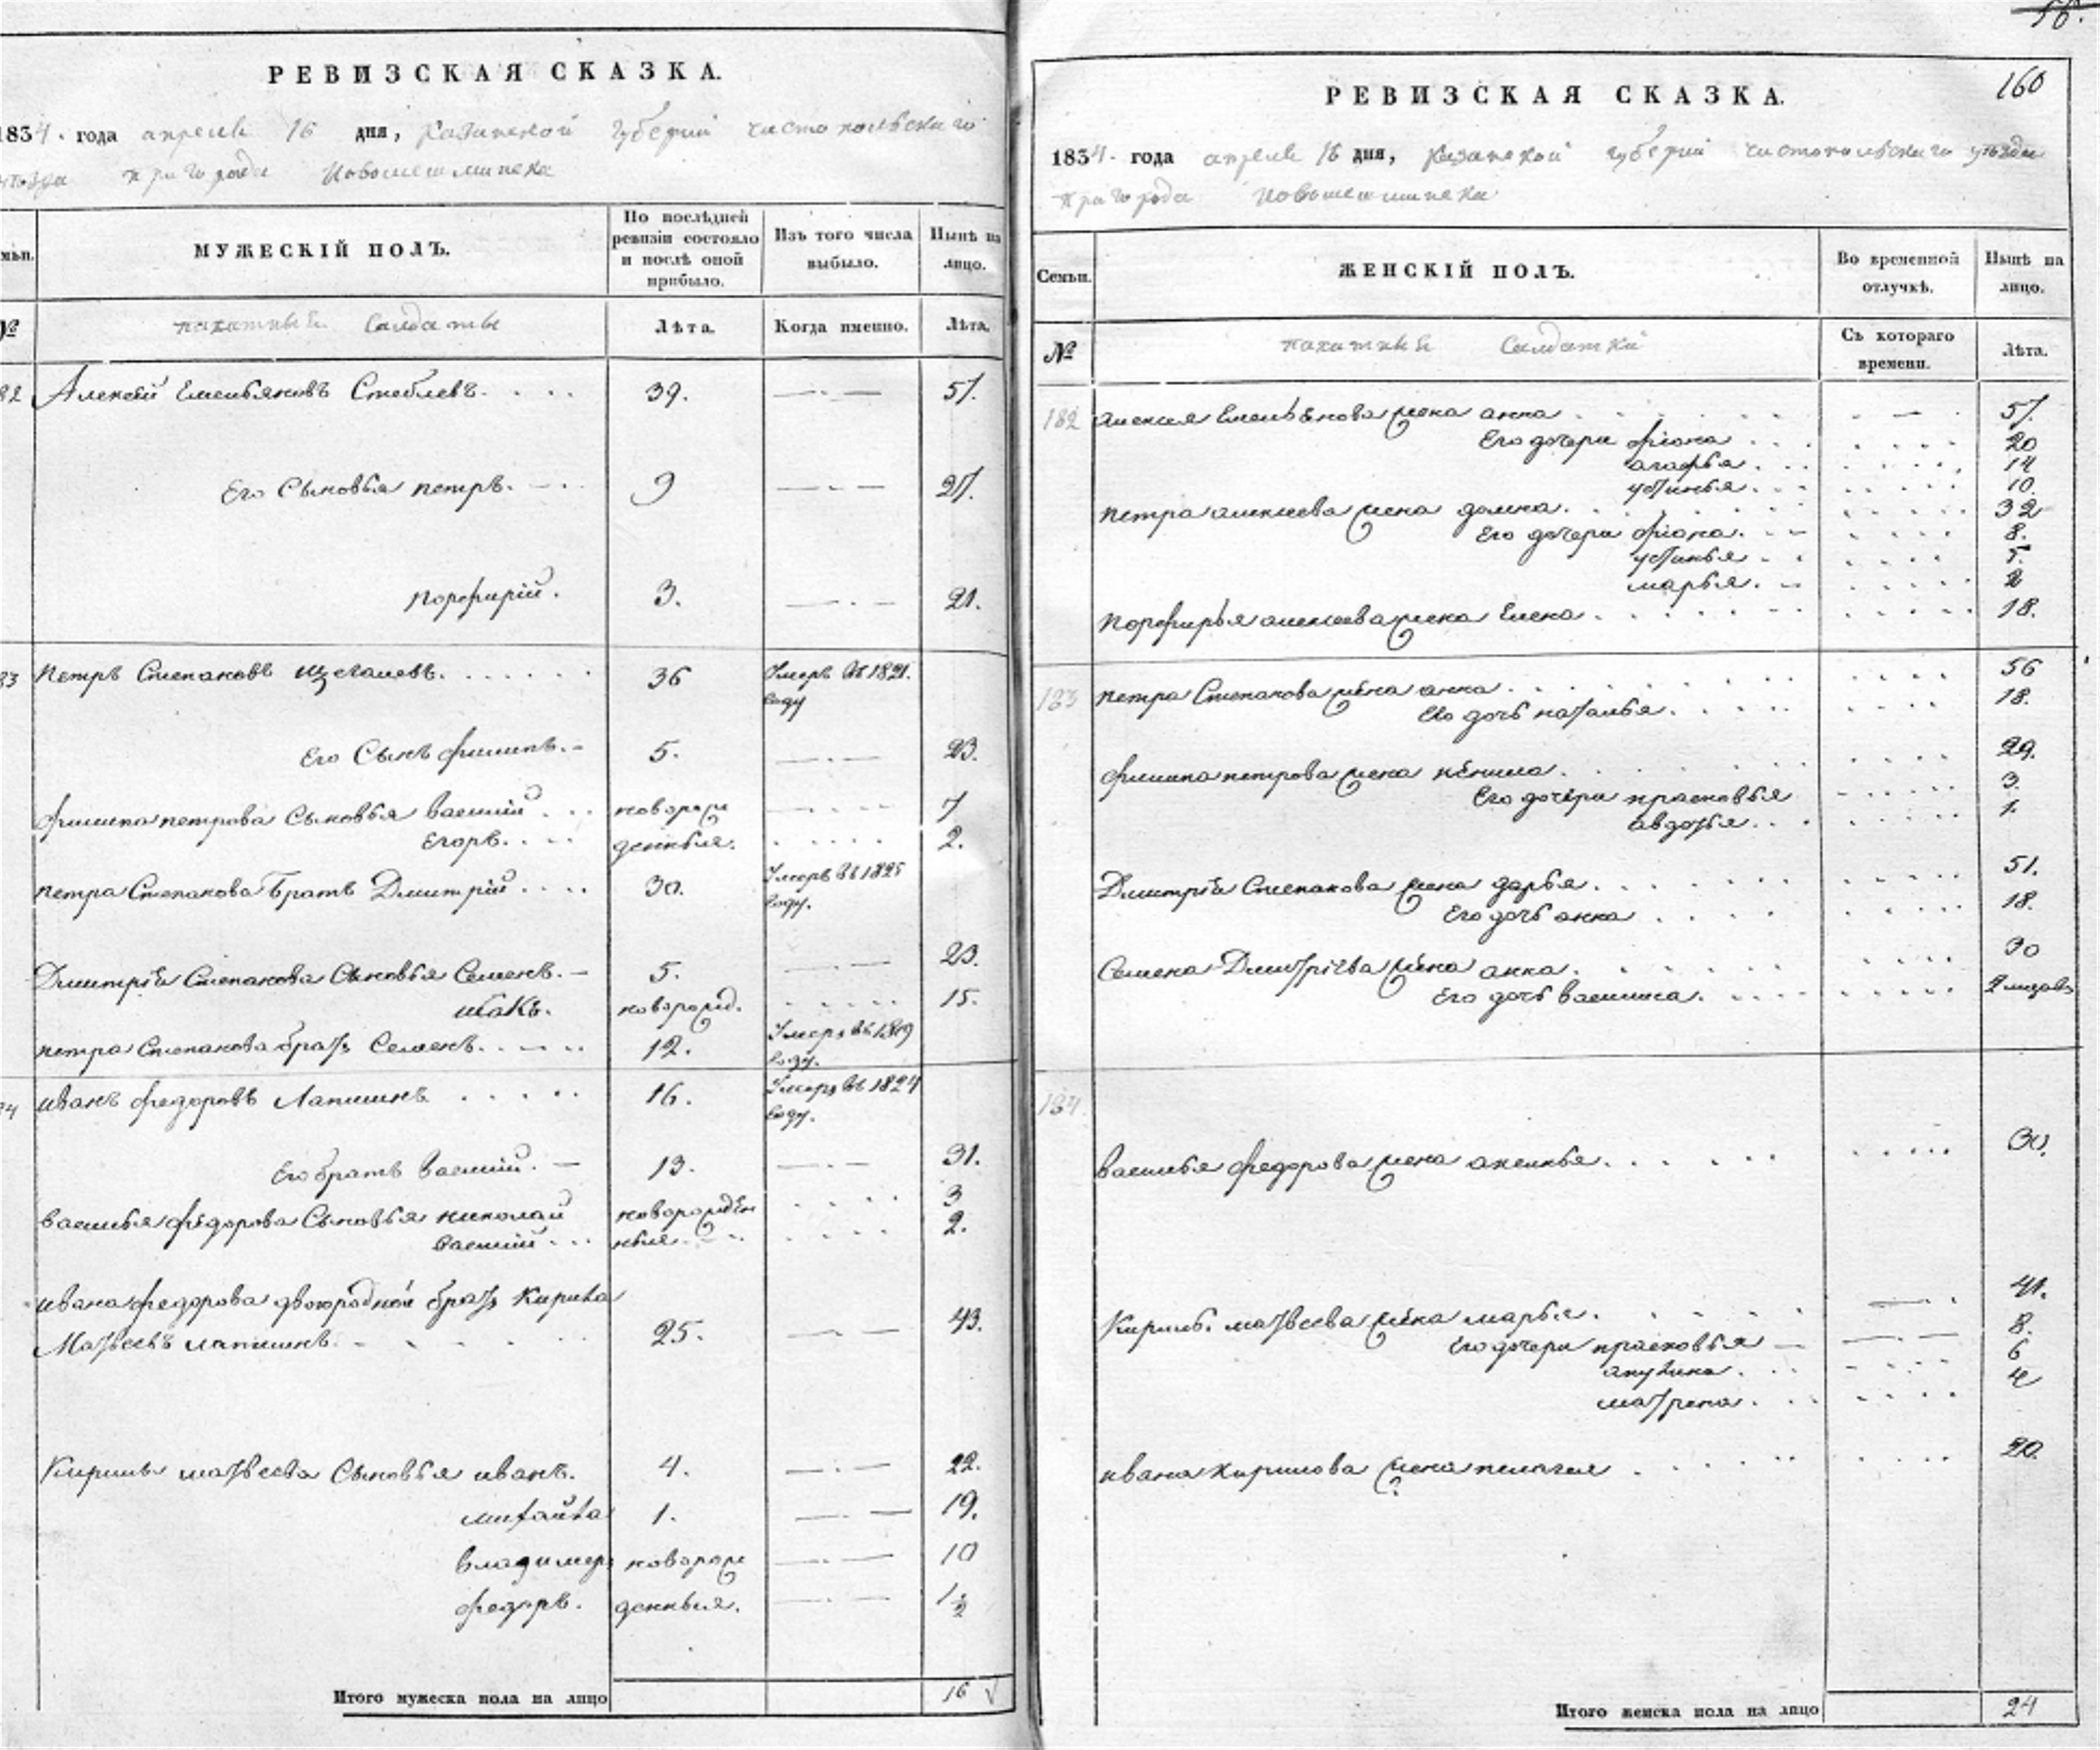 РЕВИЗСКАЯ СКАЗКА.
1834. года апреля 16 дня, казанской губернii чистопольскаго
уѣзда пригорода Новошешминска
мьи.
МУЖЕСКІЙ ПОЛЪ.
По послѣдней ревизіи состояло и послѣ оной прибыло.
Изъ того числа выбыло.
Нынѣ на лицо.
№
пахатныи Салдаты
Лѣта.
Когда именно.
Лѣта.
82 Алексѣй Емельяновъ Стеблевъ. 39. 57.
Его Сыновья петръ. 9 27.
порфирій. 3. 21.
83 петръ Степановъ 36 Умеръ въ 1821. году
Его Сынъ филипъ. 5. 23.
филипа петрова Сыновья василий новорож 7
Егоръ. денныя. 2.
петра Степанова Братъ Дмитрій 30. Умеръ въ 1825 году.
Дмитрiя Степанова Сыновья Семенъ. 5. 23.
исакъ. новорожд. 15.
петра Степанова братъ Семенъ. 12. Умеръ въ 1819 году.
84 иванъ федоровъ Лапшинъ 16. Умеръ въ 1824 году.
Его братъ василий. 13. 31.
василья федорова Сыновья николай новорожден 3
василий ныя. 2.
ивана федорова двоюродной братъ Кирила
Матвеевъ лапшинъ 25. 43.
Кирилы матвеева Сыновья иванъ. 4. 22.
михайла 1. 19.
владимеръ новорож 10
федоръ. денныя. 1½
Итого мужеска пола на лицо 16
56.
160
РЕВИЗСКАЯ СКАЗКА.
1834. года апреля 16 дня, казанской губернii чистопольскаго уѣзда
пригорода Новошешминска
Семьи.
ЖЕНСКІЙ ПОЛЪ.
Во временной отлучкѣ.
Нынѣ на лицо.
№
пахатныи Салдатки
Съ котораго времени.
Лѣта.
182 алексея Емельянова жена анна 57.
Его дочери фiона 20
агафья. 14
устинья. 10.
петра алексеева жена домна. 32
Его дочери фiона. 8.
устинья 5.
марья. 2
порфирья алексеева жена Елена 18.
183 петра Степанова жена анна 56
Его дочь наталья. 18.
филипа петрова жена 29.
Его дочери прасковья 3.
авдотья. 1.
Дмитрiя Степанова жена дарья. 51.
Его дочь анна 18.
Семена Дмитрiева жена анна. 30
Его дочь василиса.
184.
василья федорова жена аксинья. 30.
Кирилы матвеева жена марья. 41.
Его дочери прасковья 8.
акулина. 6
матрена. 4
ивана кирилова жена пелагея 20.
Итого женска пола на лицо 24